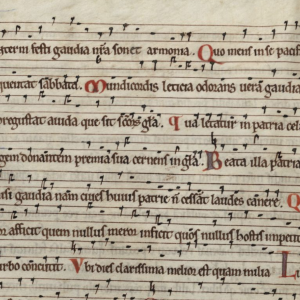 eterni festi gaudia nr̄a sonet armonia. Quo mens in se pacif
quentat sabbata. Mundi cordis leticia odorans uera gaudia
pregustat auida que sit sc̄ōꝝ gl̄a. Qua letatur in patria cel
gem donantem premia sua cernens in gl̄a. Beata illa patria
si gaudia nam ciues huius patrie n̄ cessant laudes canere. Q
or afficit quem nullus meror inficit quos nullus hostis impetit
urbo concutit. Vbi dies clarissima melior est quam milia L